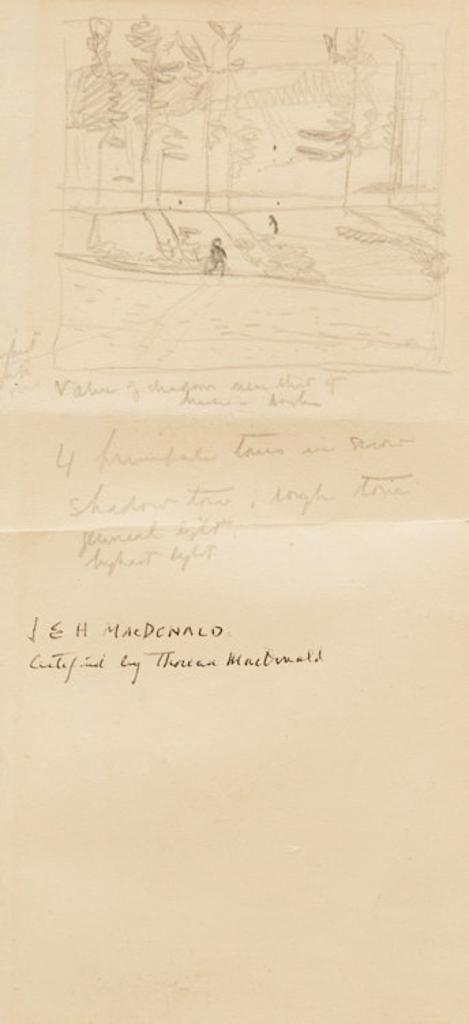 Value of shadows near that of
4 principal tones in snow
Shadow tone, rough tone
general light
highest light
J E H MACDONALD.
Certified by Thoreau MacDonald